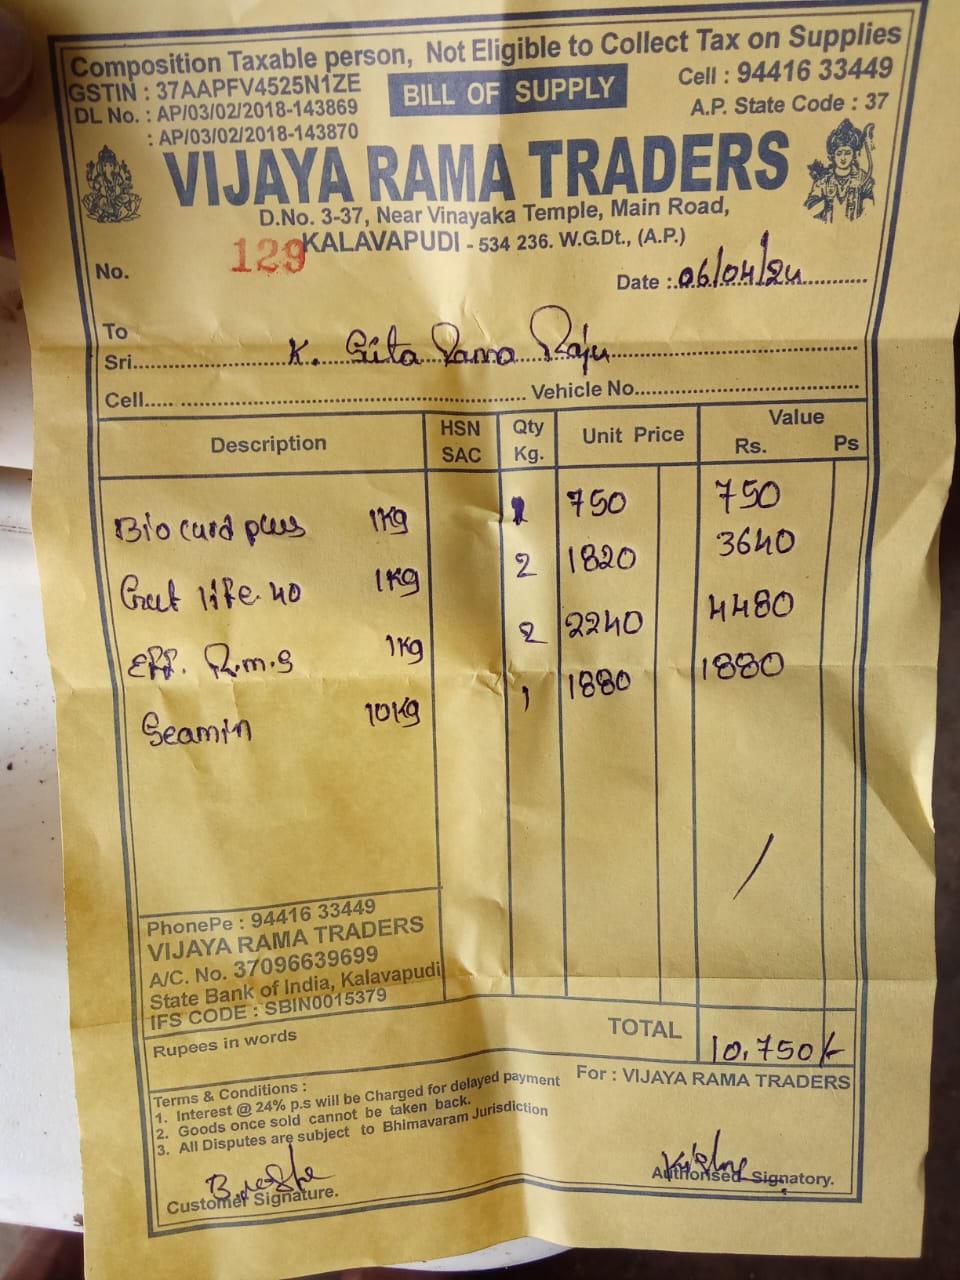 Composition Taxable person, Not Eligible to Collect Tax on Supplies
GSTIN : 37AAPFV4525N1ZE
BILL OF SUPPLY
Cell : 94416 33449
DL No. : AP/03/02/2018-143869
A.P. State Code : 37
: AP/03/02/2018-143870
VIJAYA RAMA TRADERS
D.No. 3-37, Near Vinayaka Temple, Main Road,
KALAVAPUDI - 534 236. W.G.Dt., (A.P.)
No. 129
Date : 06/04/24
To
Sri. K. Sita Rama Raju
Cell. Vehicle No.
Description HSN SAC Qty Kg. Unit Price Value Rs. Ps
Bio card plus 1Kg 1 750 750
Gut life.40 1Kg 2 1820 3640
Eff. R.m.s 1Kg 2 2240 4480
Seamin 10Kg 1 1880 1880
PhonePe : 94416 33449
VIJAYA RAMA TRADERS
A/C. No. 37096639699
State Bank of India, Kalavapudi
IFS CODE : SBIN0015379
TOTAL 10,750/-
Rupees in words
For : VIJAYA RAMA TRADERS
Terms & Conditions :
1. Interest @ 24% p.s will be Charged for delayed payment
2. Goods once sold cannot be taken back.
3. All Disputes are subject to Bhimavaram Jurisdiction
Customer Signature.
Authorised Signatory.